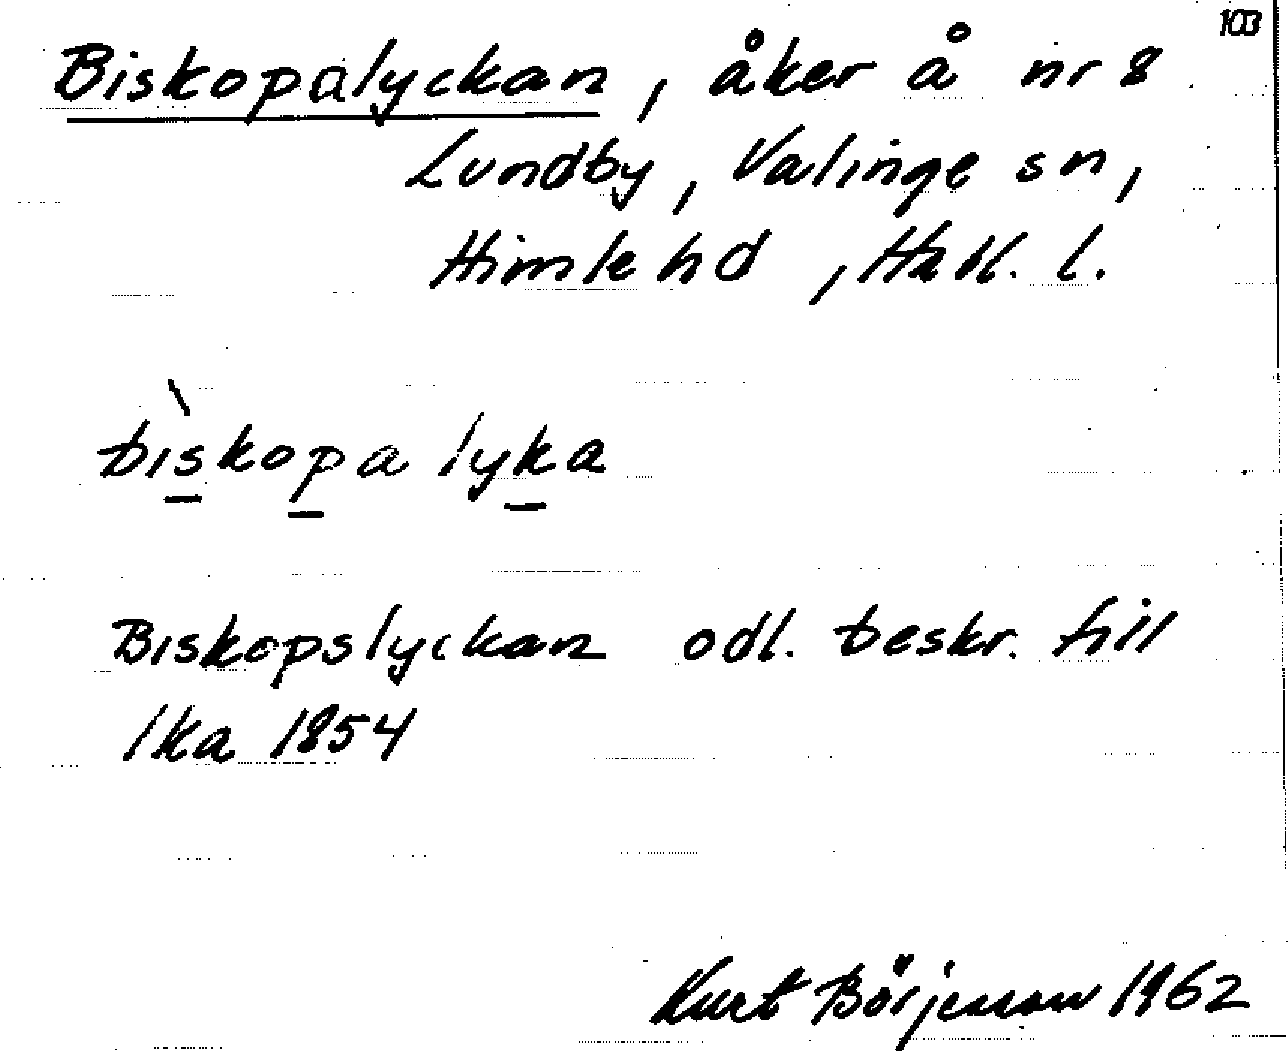 103
Biskopalyckan, åker å nr 8
Lundby, Valinge sn,
Himle hd, Hall. l.
bìskopa lyka
Biskopslyckan odl. beskr. till
lka 1854
Kurt Börjesson 1962